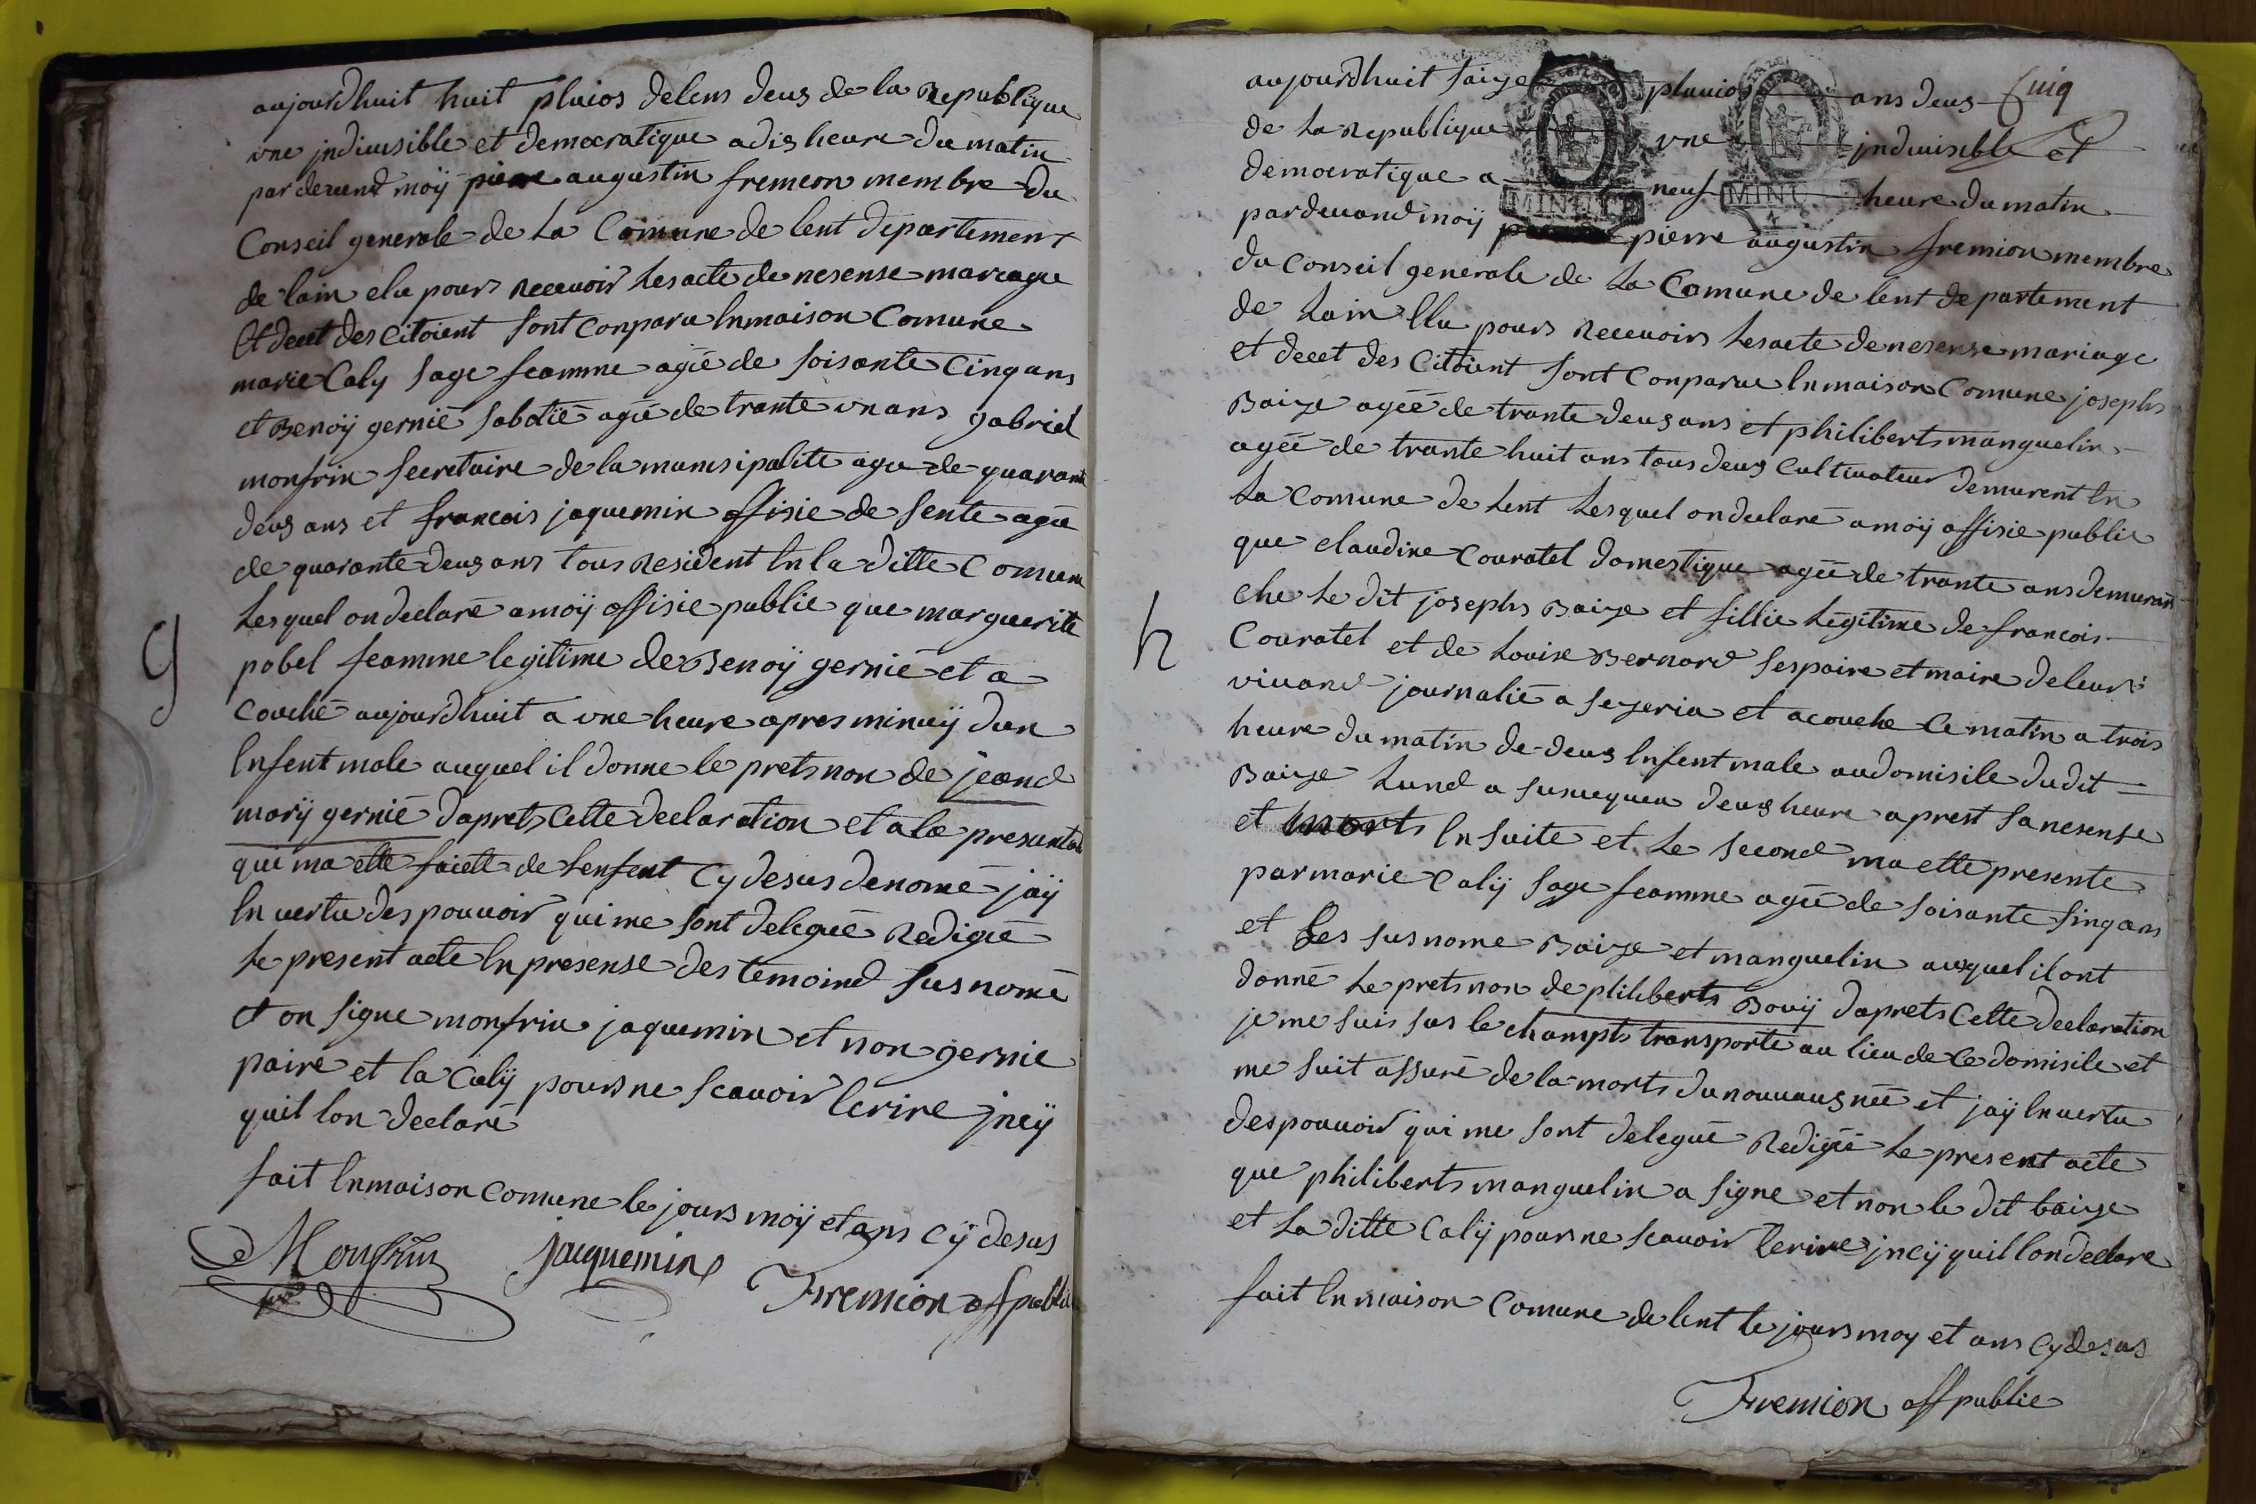 aujourdhuit huit pluios delens deus de la Republique
vne jndiuisible et democratique adis heure du matin
pardeuend moÿ pierre augustin fremion membre du
Conseil generale de La Comune de lent departement
de lain elu pours Receuoir Lesacte de nesense mariage
Et decet des Citoient sont conparu Enmaison Comune
marie Caly sage feamme agée de soisante Cinq ans
et Benoÿ gernié sabotié agée de trante vn ans gabriel
monfrin secretaire de la munisipalite agée de quarante
deus ans et francois jaquemin offisie de sente agée
de quarante deus ans tous Resident En la ditte Comune
Lesquel on declaré amoÿ offisie publie que marguerite
pobel feamme legitime de Benoÿ gernié et a
Couché aujourdhuit a vne heure apres minuÿ dun
Enfent male auquel il donne le pretsnon de jeand
marÿ gernié daprets Cette declaration et ala presentation
qui ma ette faicte de Lenfent Cy desus denomé jaÿ
En uertu des pouuoir qui me sont delegué Redigié
Le present acte En presense des temoind susnomé
et on signe monfrin jaquemin et non gernie
paire et la Calÿ pours ne scauoir Ecrire jneÿ
quil lon declaré
fait Enmaison comune le jours moÿ et ans cÿ desus
Monfrin
jaquemin
Fremion off publie
g
Cinq
aujourdhuit saize pluuios ans deus
de La Republique vne jndiuisible et
democratique a neuf heure du matin
MINUTE
MINU
pardeuand moÿ pierre augustin fremion membre
du Conseil generale de La Comune de lent departement
de Lain Elu pours Receuoirs Lesacte denesense mariage
et decet des Citoient sont Conparue Enmaison Comune josephs
Baize agéé de trante deus ans et philiberts manguelin
agéé de trante huit ans tous deus Cultiuateur demurent En
La Comune de Lent Lesquel ondeclaré amoÿ offisie publie
que claudine Couratel domestique agéé de trante ans demurant
che Le dit josephs Baize et fillie Légitime de francois
Couratel et de Louise Bernard ses paire et maire deleur
viuand journalié a sezeria et acouche Ce matin a trois
heure du matin de deus Enfent male audomisile dudit
Baize Lund a susuequeu deus heure aprest sanesense
et morts En suite et Le second ma ette presente
par marie Calÿ sage feamme agéé de soisante sinq ans
et Les susnome Baize et manguelin auquel il ont
donné Le pretsnon de pliliberts Bouÿ daprets Cette declaration
je me suis sus le champts transporté au lieu de Ce domisile et
me suit assuré de la morts dunouuaus néé et jaÿ En uertu
des pouuoir qui me sont delegué Redigié Le present acte
que philiberts manguelin a signe et non le dit baize
et La ditte Calÿ pours ne scauoir Ecrire jneÿ quil lon declare
fait Enmaison Comune de lent le jours moy et ans Cy desus
Fremion off publie
h